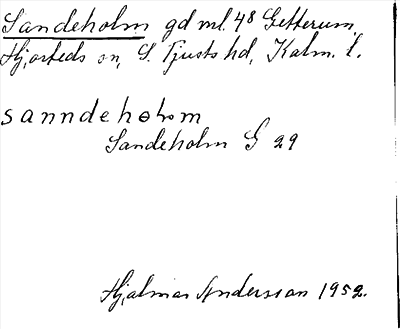 Sandeholm gd ml. 48 Getterum,
Hjorteds sn, S. Tjusts hd, Kalm. l.
sanndehoɬom
Sandeholm G 29
Hjalmar Andersson 1952.